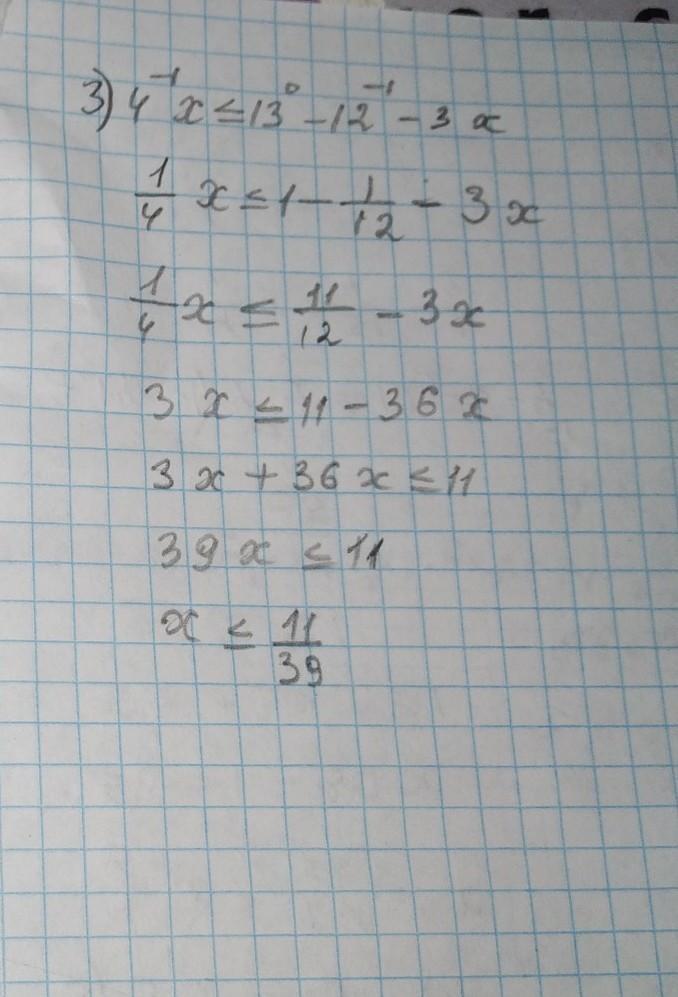 3) 4⁻¹x ≤ 13⁰ - 12⁻¹ - 3x
1/4 x ≤ 1 - 1/12 - 3x
1/4 x ≤ 11/12 - 3x
3x ≤ 11 - 36x
3x + 36x ≤ 11
39x ≤ 11
x ≤ 11/39